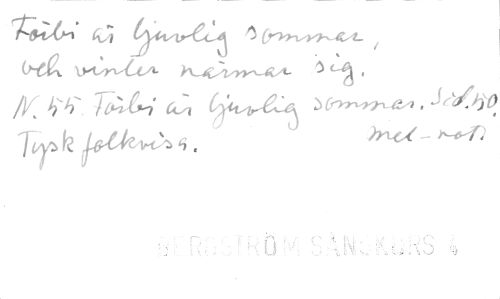 Förbi är ljuvlig sommar,
och vinter närmar sig.
N. 55. Förbi är ljuvlig sommar. Sid. 50.
Tysk folkvisa. Mel-not.
BERGSTRÖM SÅNGKURS 4